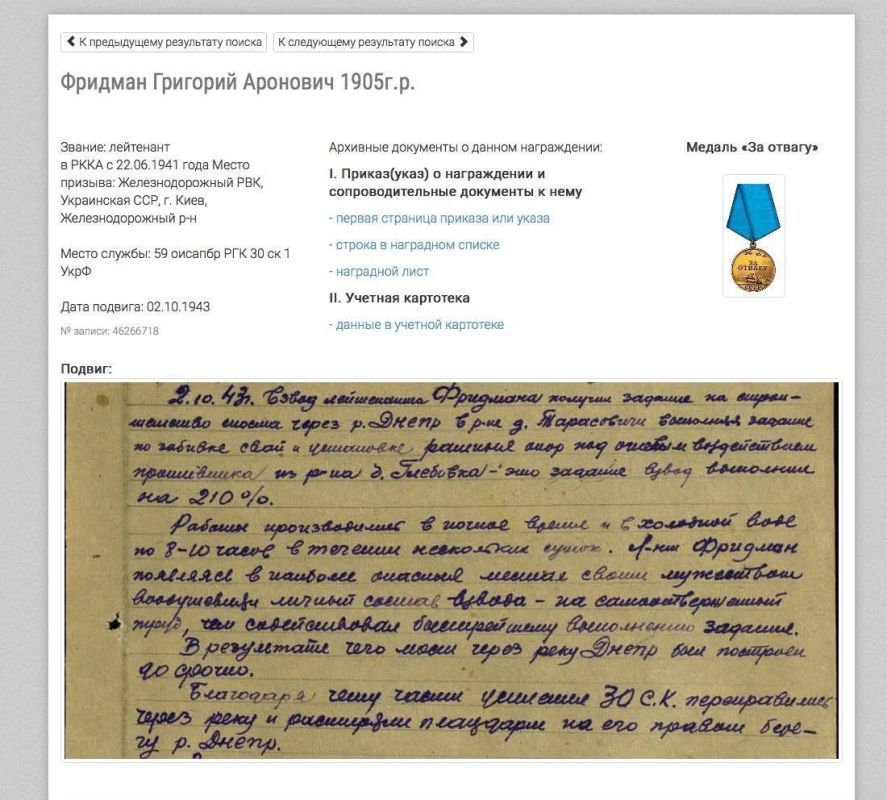 К предыдущему результату поиска
К следующему результату поиска
Фридман Григорий Аронович 1905г.р.
Звание: лейтенант
в РККА с 22.06.1941 года Место
призыва: Железнодорожный РВК,
Украинская ССР, г. Киев,
Железнодорожный р-н
Место службы: 59 оисапбр РГК 30 ск 1
УкрФ
Дата подвига: 02.10.1943
№ записи: 46266718
Архивные документы о данном награждении:
I. Приказ(указ) о награждении и
сопроводительные документы к нему
- первая страница приказа или указа
- строка в наградном списке
- наградной лист
II. Учетная картотека
- данные в учетной картотеке
Медаль «За отвагу»
ЗА
ОТВАГУ
СССР
Подвиг:
2.10.43г. Взвод лейтенанта Фридмана получил задание на строи-
тельство моста через р. Днепр в р-не д. Тарасовичи выполняя задание
по забивке свай и установке рамных опор под огневым воздействием
противника из р-на д. Глебовка - это задание взвод выполнил
на 210%.
Работы производились в ночное время и в холодной воде
по 8-10 часов в течении нескольких суток. Л-нт Фридман
появляясь в наиболее опасных местах своим мужеством
воодушевлял личный состав взвода - на самоотверженный
труд, чем содействовал быстрейшему выполнению задания.
В результате чего мост через реку Днепр был построен
до срочно.
Благодаря чему части усиления 30 С.К. переправились
через реку и расширяли плацдарм на его правом бере-
гу р. Днепр.